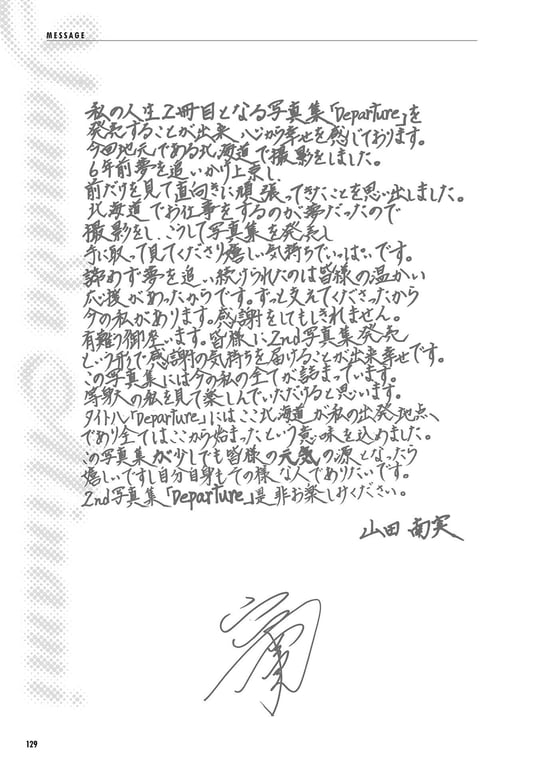 MESSAGE
私の人生2冊目となる写真集「Departure」を
発売することが出来、心から幸せを感じております。
今回地元である北海道で撮影をしました。
6年前夢を追いかけ上京し、
前だけを見て直向きに頑張ってきたことを思い出しました。
北海道でお仕事をするのが夢だったので
撮影をし、こうして写真集を発売し
手に取って見てくださり嬉しい気持ちでいっぱいです。
諦めず夢を追い続けられたのは皆様の温かい
応援があったからです。ずっと支えてくださったから
今の私があります。感謝をしてもしきれません。
有難う御座います。皆様に2nd写真集発売
という形で感謝の気持ちを届けることが出来幸せです。
この写真集には今の私の全てが詰まっています。
等身大の私を見て楽しんでいただけると思います。
タイトル「Departure」にはここ北海道が私の出発地点、
であり全てはここから始まったという意味を込めました。
この写真集が少しでも皆様の元気の源となったら
嬉しいですし自分自身もその様な人でありたいです。
2nd写真集「Departure」是非お楽しみください。
山田南実
129